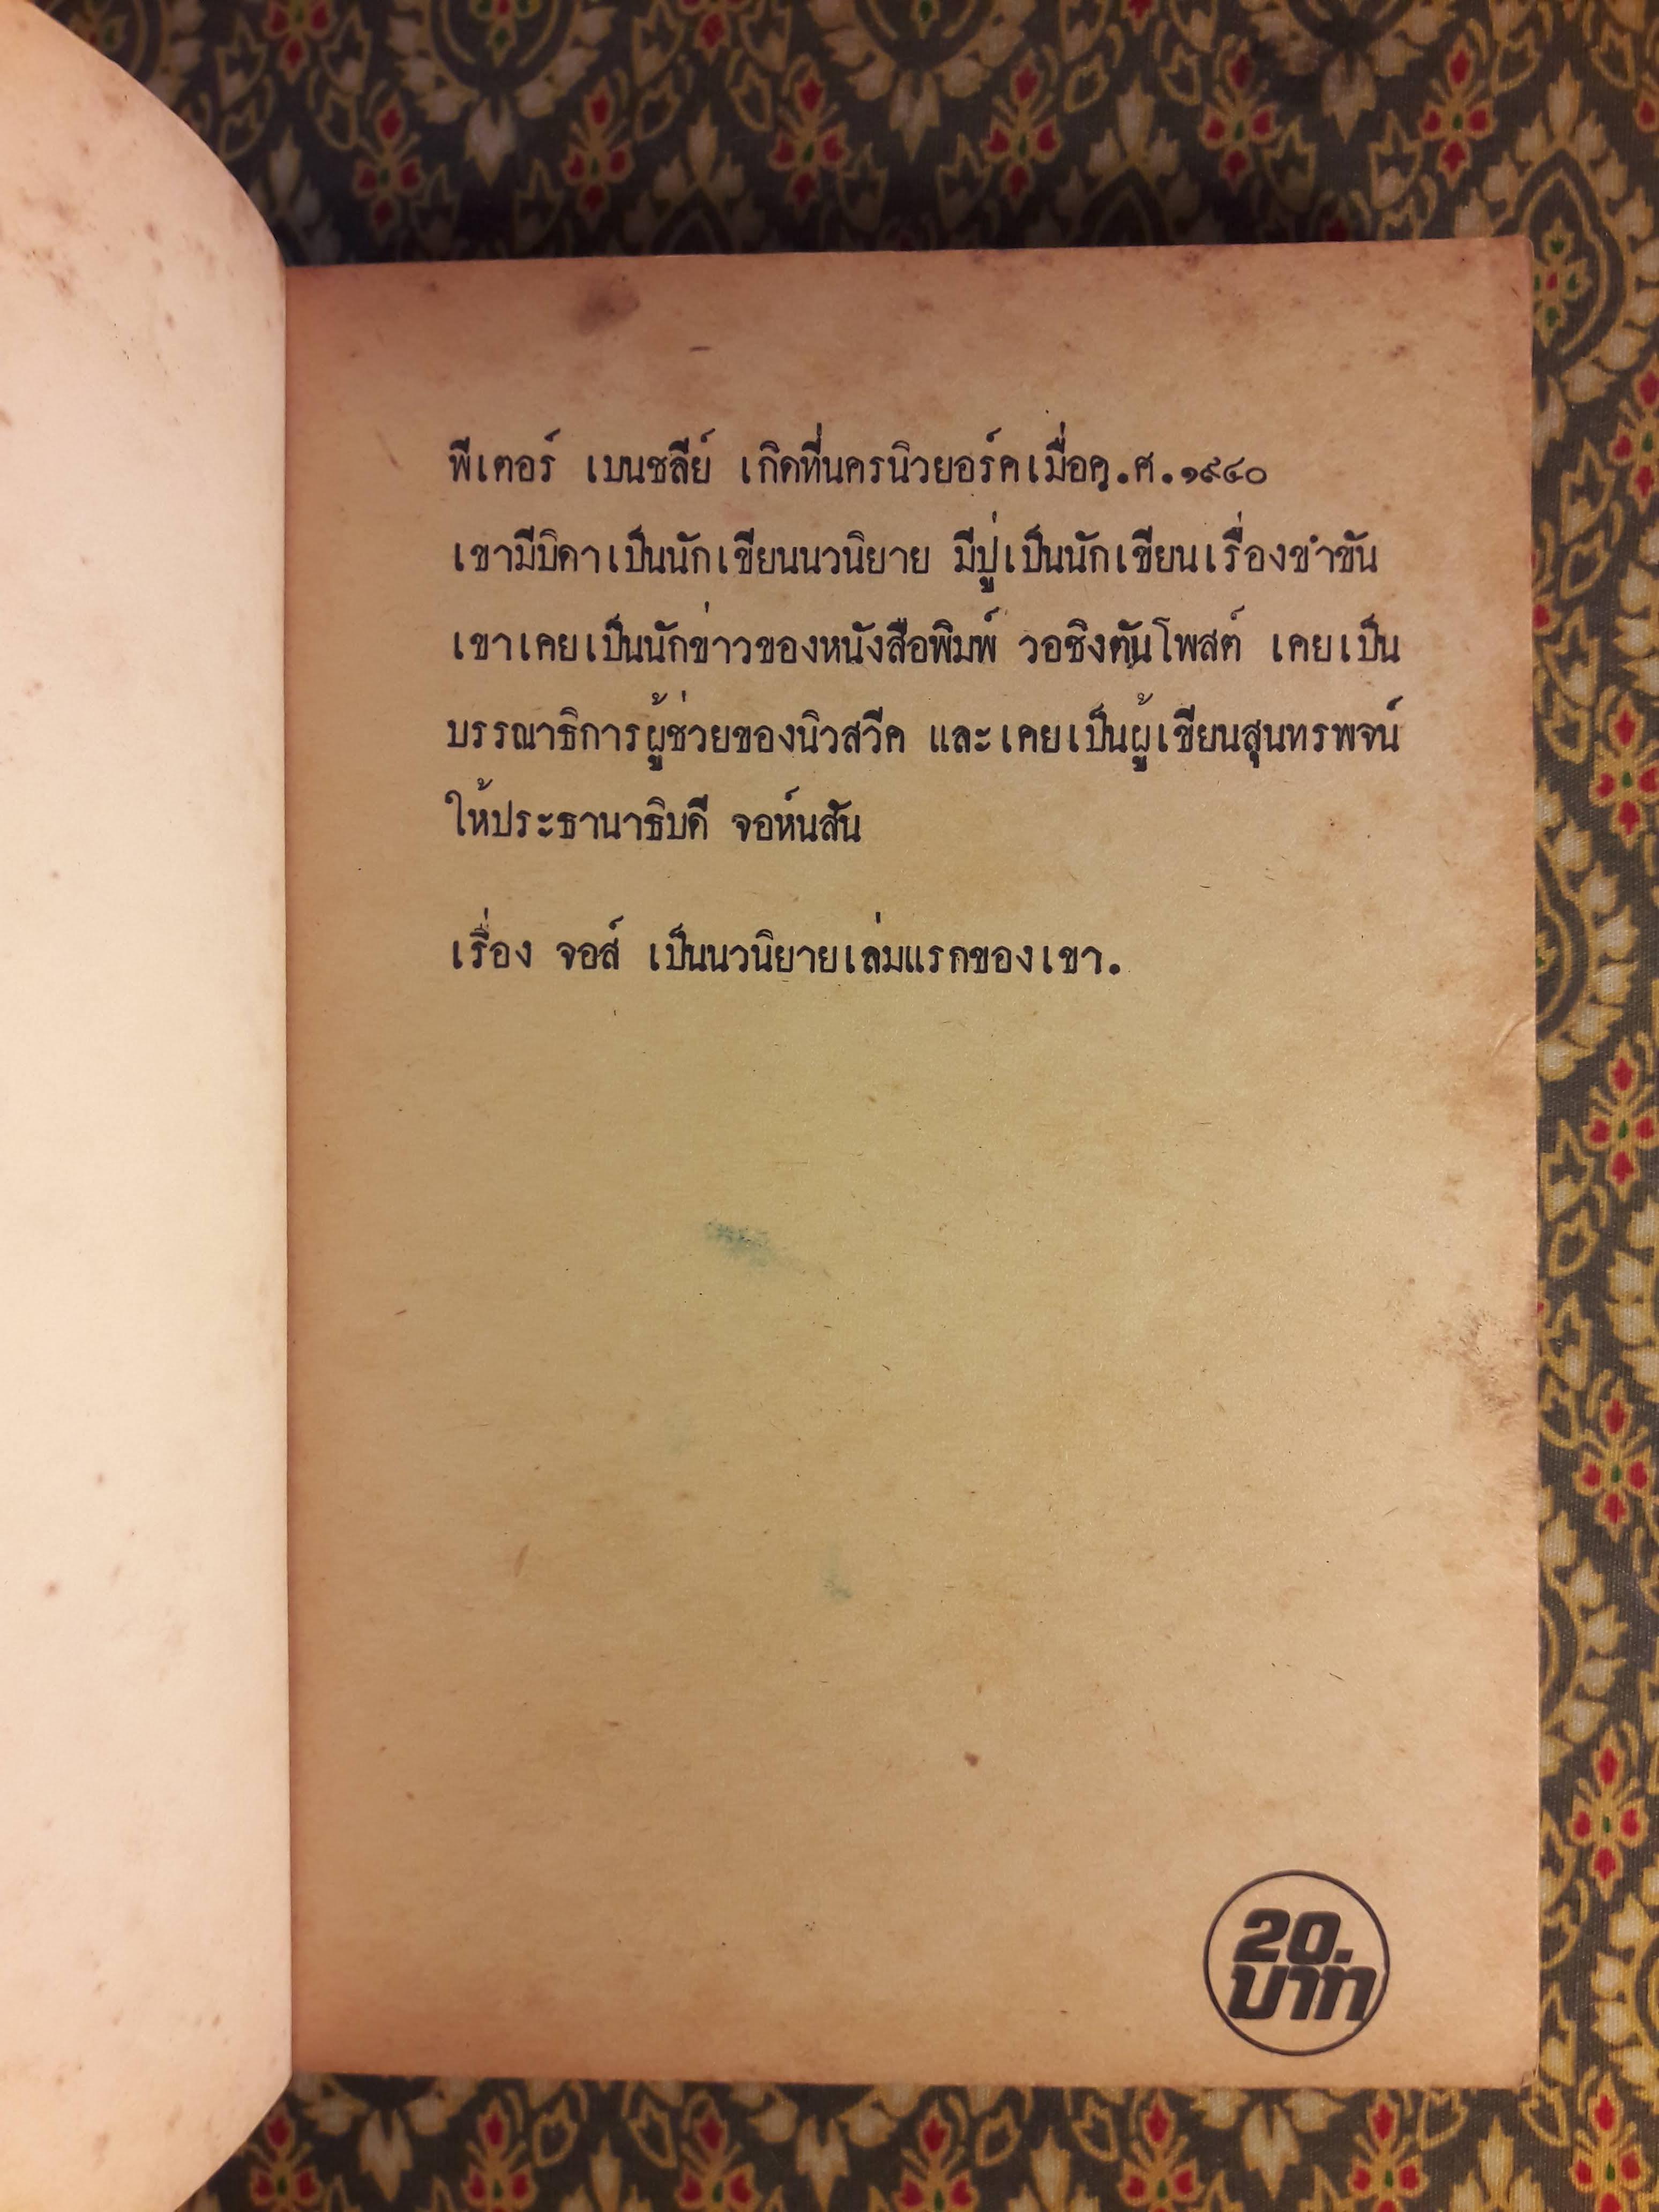 พีเตอร์ เบนชลีย์ เกิดที่นครนิวยอร์คเมื่อค.ศ.๑๙๔๐
เขามีบิดาเป็นนักเขียนนวนิยาย มีปู่เป็นนักเขียนเรื่องขำขัน
เขาเคยเป็นนักข่าวของหนังสือพิมพ์ วอชิงตันโพสต์ เคยเป็น
บรรณาธิการผู้ช่วยของนิวสวีค และเคยเป็นผู้เขียนสุนทรพจน์
ให้ประธานาธิบดี จอห์นสัน
เรื่อง จอส์ เป็นนวนิยายเล่มแรกของเขา.
20.
บาท